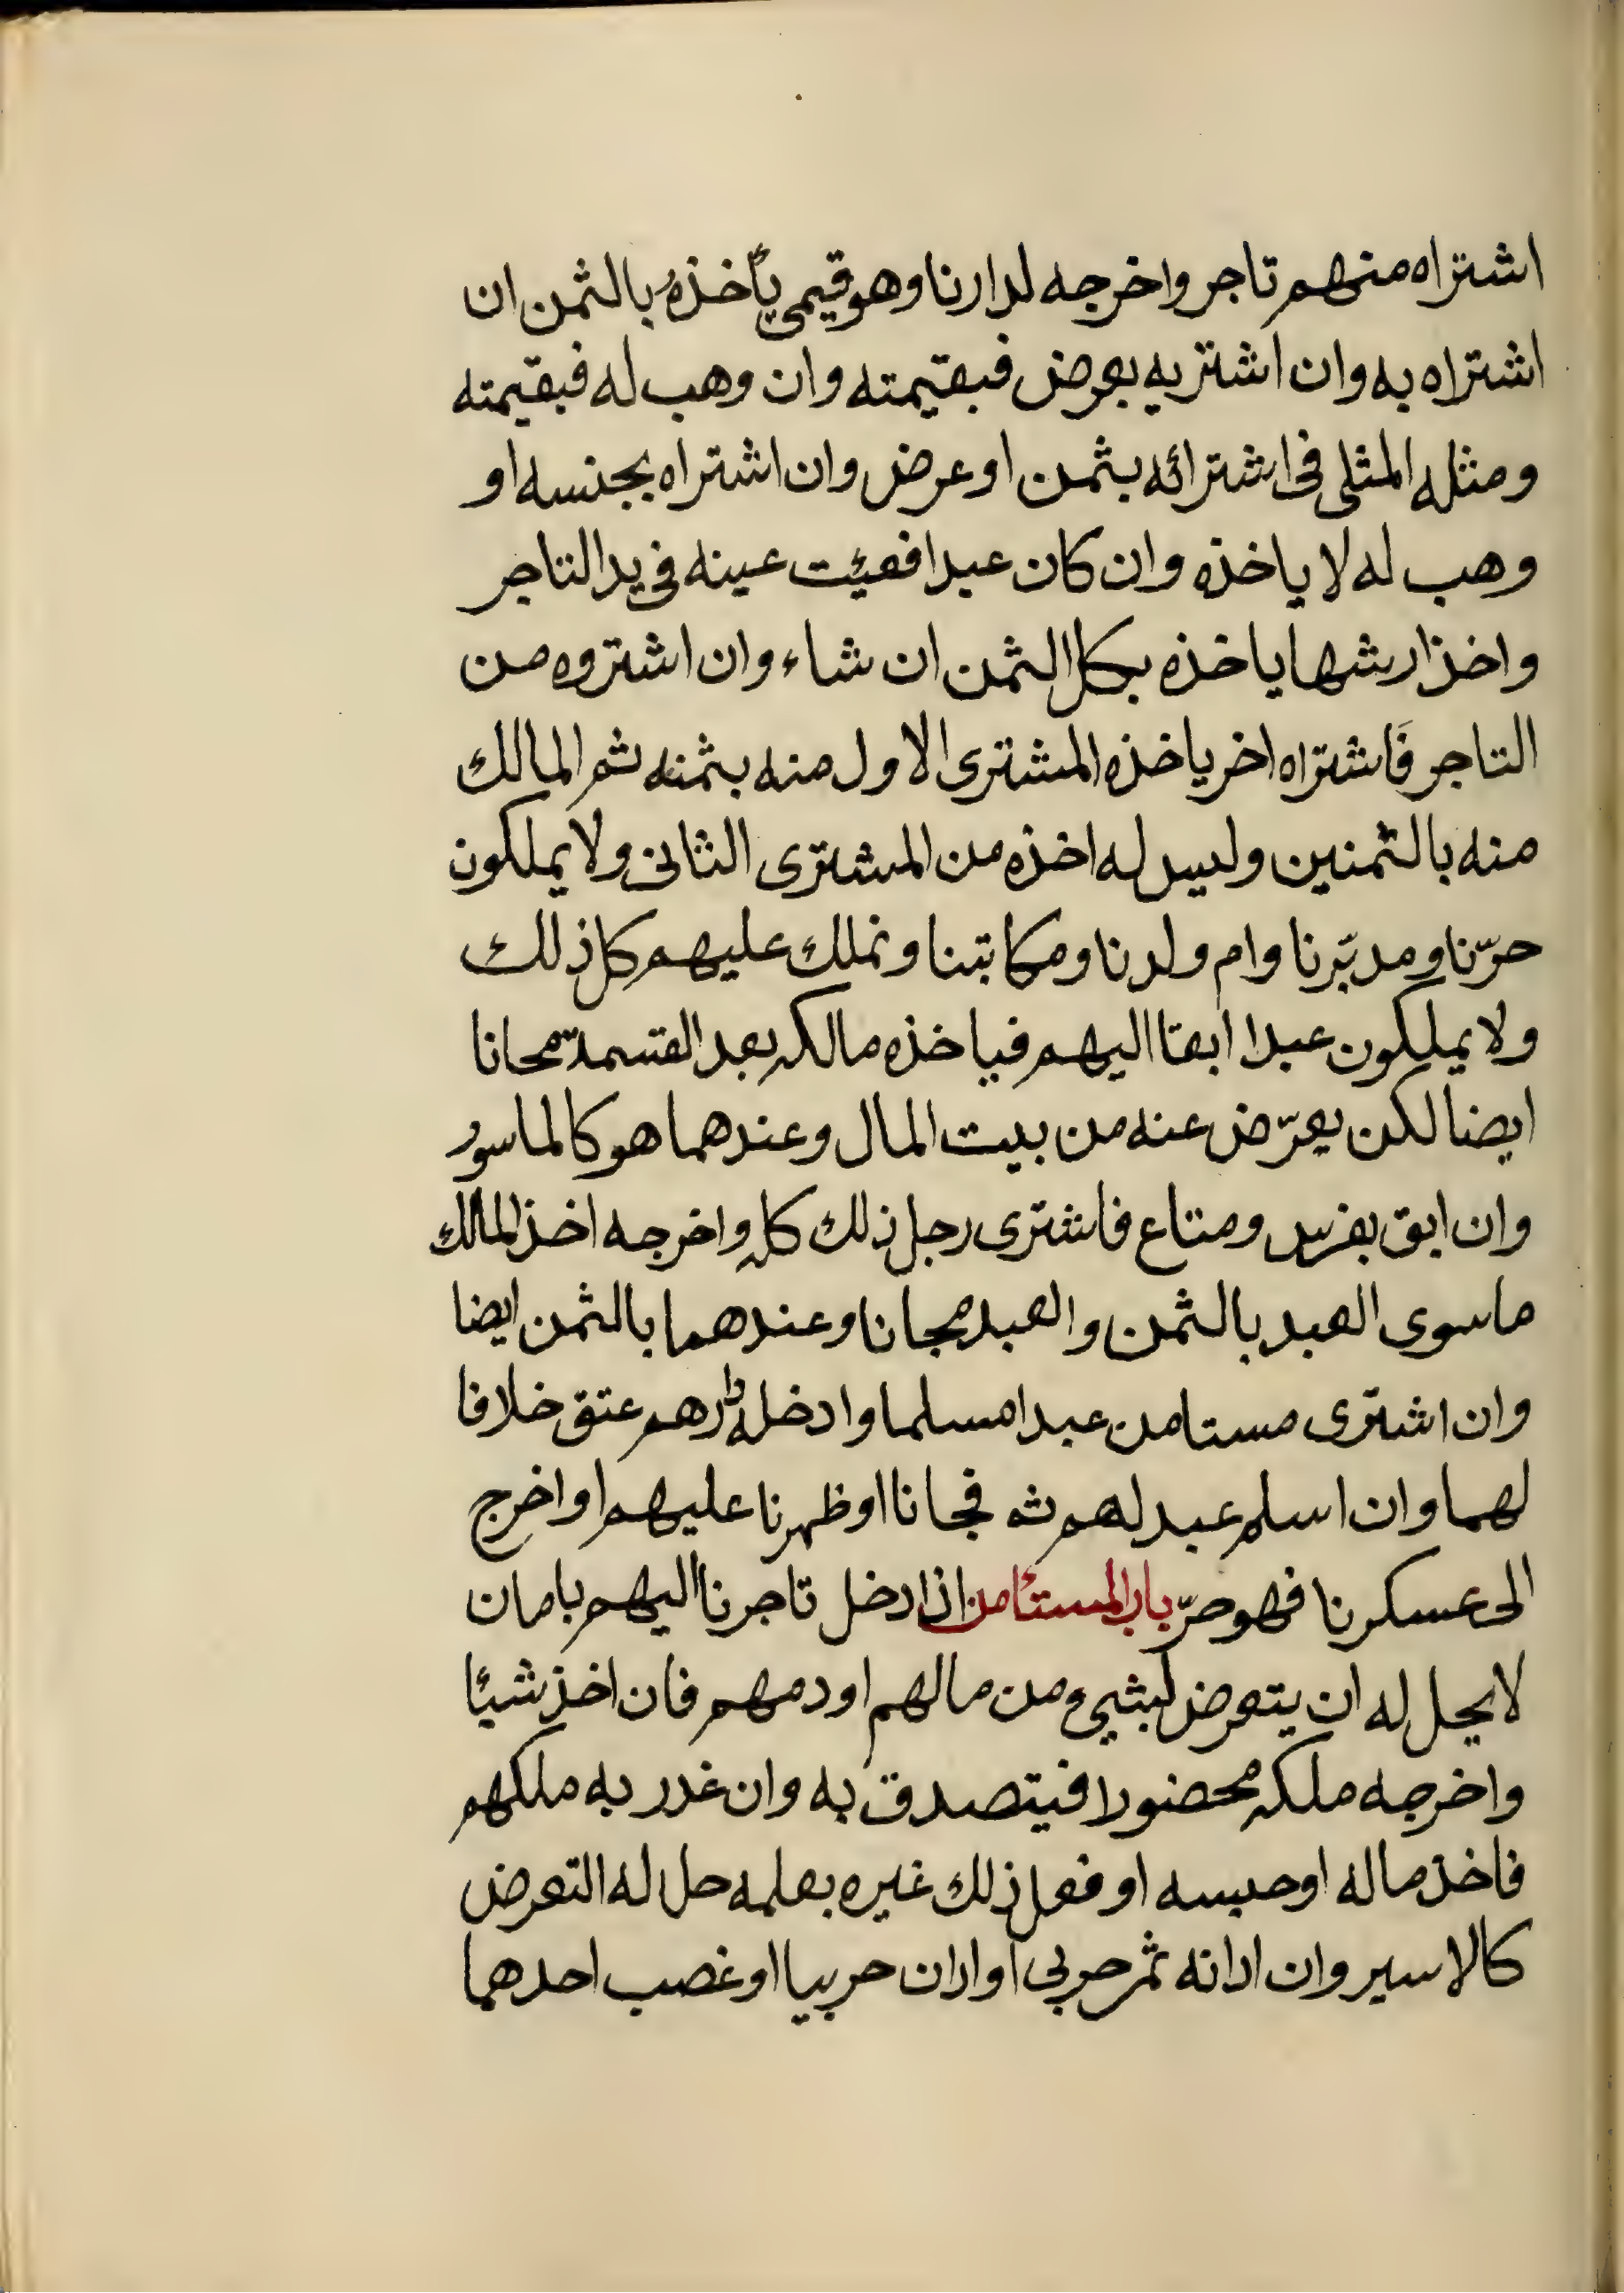 اشتراه منهم تاجر واخرجه لدارنا وهو قيمى يأخذه بالثمن ان
اشتراه به وان اشتريه بعرض فبقيمته وان وهب له فبقيمته
ومثله المثلى فى اشترائه بثمن او عرض وان اشتراه بجنسه او
وهب له لا ياخذه وان كان عبدا ففيئت عينه فى يد التاجر
واخذ ارشها ياخذه بكل الثمن ان شاء وان اشتروه من
التاجر فَاشتراه اخر ياخذه المشترى الاول منه بثمنه ثم المالك
منه بالثمنين وليس له اخذه من المشترى الثانى ولا يملكون
حرّنا ومدبّرنا وام ولدنا ومكاتبنا ونملك عليهم كل ذلك
ولا يملكون عبدا ابقا اليهم فياخذه مالكه بعد القسمة مجانا
ايضا لكن يعرّض عنه من بيت المال وعندهما هو كالماسور
وان ابق بفرس ومتاع فاشترى رجل ذلك كله واخرجه اخذ المالك
ما سوى العبد بالثمن والعبد مجانا وعندهما بالثمن ايضا
وان اشترى مستامن عبدا مسلما وادخله دارهم عتق خلافا
لهما وان اسلم عبد لهم ثم فجانا او ظهرنا عليهم او اخرج
الى عسكرنا فهو حرّ باب المستئامن اذا دخل تاجرنا اليهم بامان
لا يحل له ان يتعرض لبشيء من مالهم او دمهم فان اخذ شيئا
واخرجه ملكه محضورا فيتصدق به وان غدر به ملكهم
فاخذ ماله او حبسه او فعل ذلك غيره بعلمه حل له التعرض
كالاسير وان ادانه ثم حربى او ادان حربيا او غصب احدهما